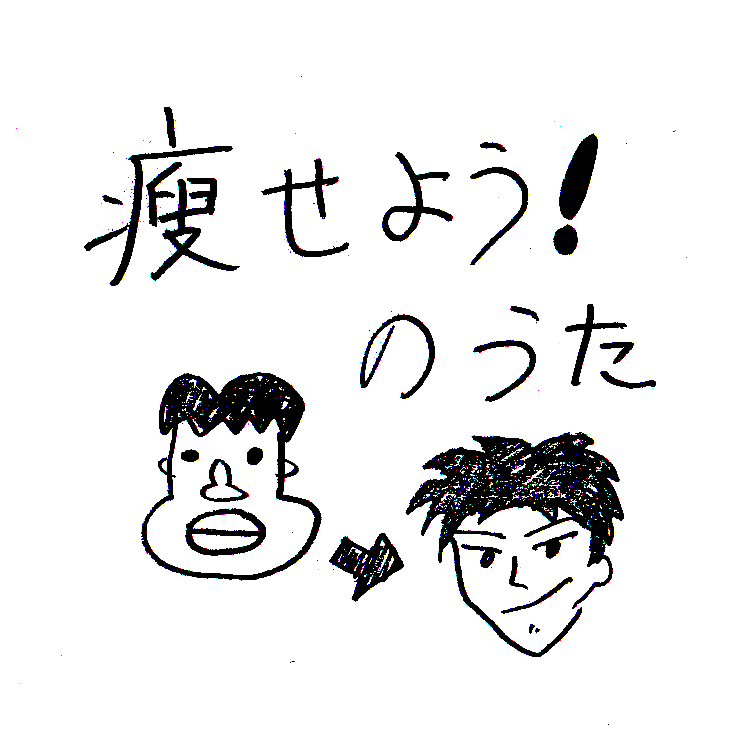 痩せよう!
のうた